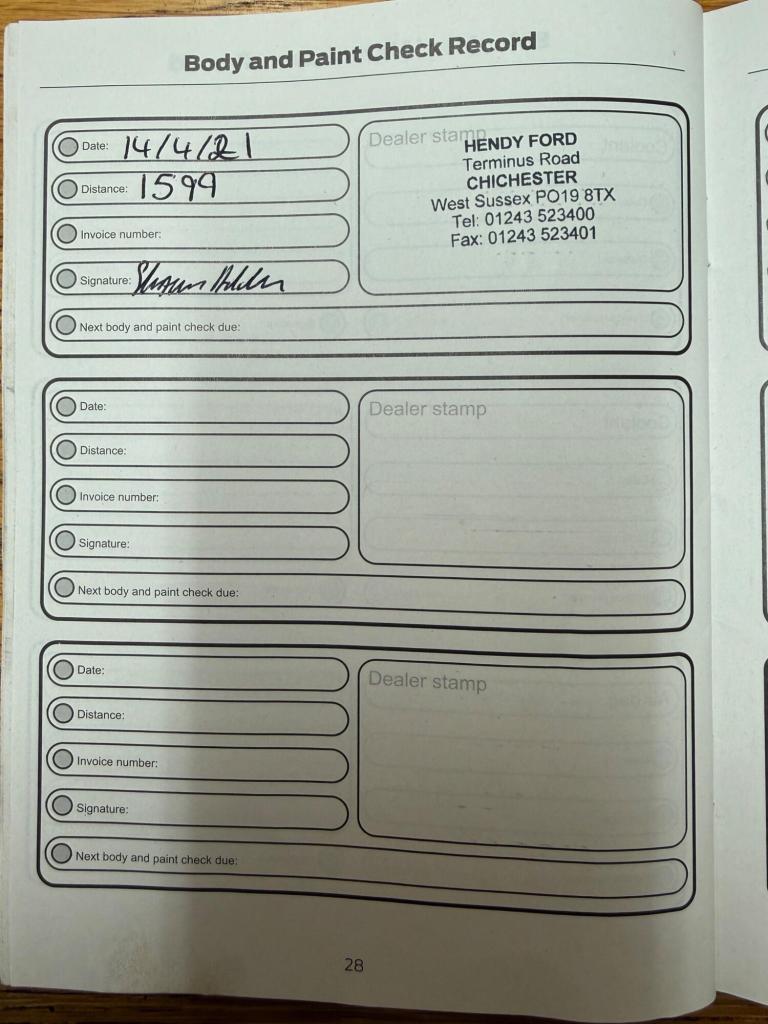 Body and Paint Check Record
Date: 14/4/21
Distance: 1599
Invoice number:
Signature:
Next body and paint check due:
Dealer stamp
HENDY FORD
Terminus Road
CHICHESTER
West Sussex PO19 8TX
Tel: 01243 523400
Fax: 01243 523401
Date:
Distance:
Invoice number:
Signature:
Next body and paint check due:
Dealer stamp
Date:
Distance:
Invoice number:
Signature:
Next body and paint check due:
Dealer stamp
28